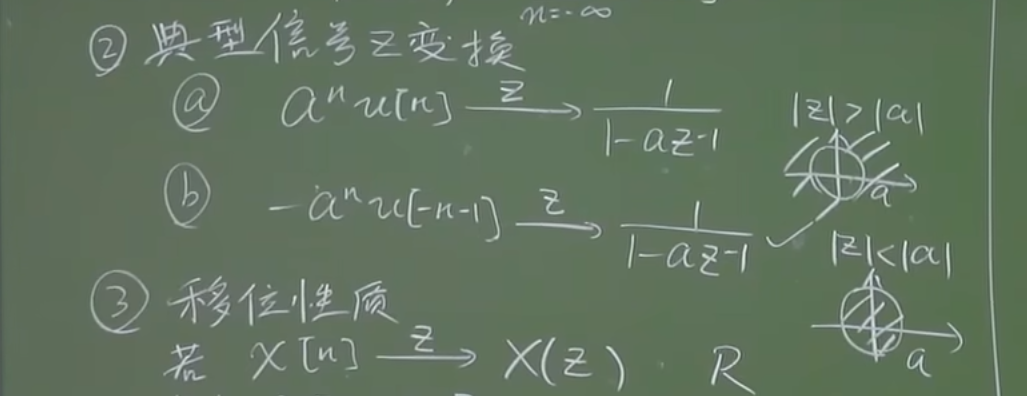 n=-∞
② 典型信号Z变换
ⓐ aⁿu[n] —Z→ 1/(1-az⁻¹) |z|>|a|
a
ⓑ -aⁿu[-n-1] —Z→ 1/(1-az⁻¹) ✓ |z|<|a|
a
③ 移位性质
若 x[n] —Z→ X(z) R